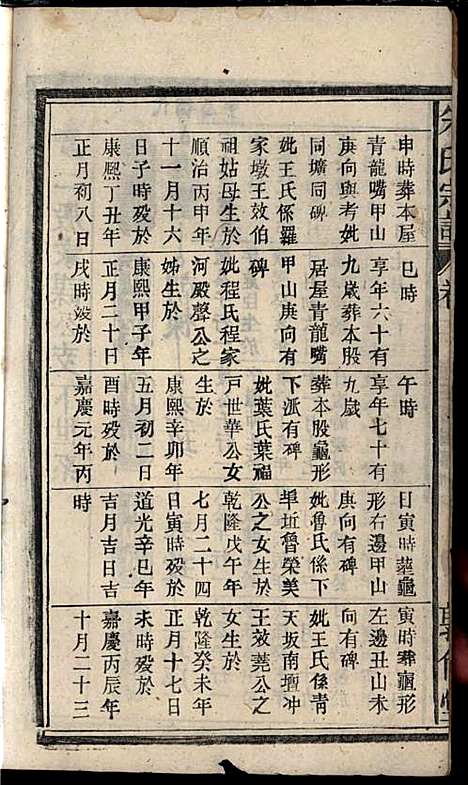 申時葬本屋
青龍嘴甲山
庚向與考妣
同壙同碑
妣王氏係羅
家墩王效伯
祖姑母生於
順治丙申年
十一月十六
日子時歿於
康熙丁丑年
正月初八日
巳時
享年六十有
九歲葬本股
居屋青龍嘴
甲山庚向有
碑
妣程氏程家
河殿聲公之
姊生於
康熙甲子年
正月二十日
戌時歿於
午時
享年七十有
九歲
葬本股龜形
下派有碑
妣葉氏葉福
戸世華公女
生於
康熙辛卯年
五月初二日
酉時歿於
嘉慶元年丙
日寅時葬龜
形右邊甲山
庚向有碑
妣魯氏係下
畢坵魯榮美
公之女生於
乾隆戊午年
七月二十四
日寅時歿於
道光辛巳年
吉月吉日吉
時
寅時葬龜形
左邊丑山未
向有碑
妣王氏係青
天坂南壇冲
王效堯公之
女生於
乾隆癸未年
正月十七日
未時歿於
嘉慶丙辰年
十月二十三
氏宗譜 卷